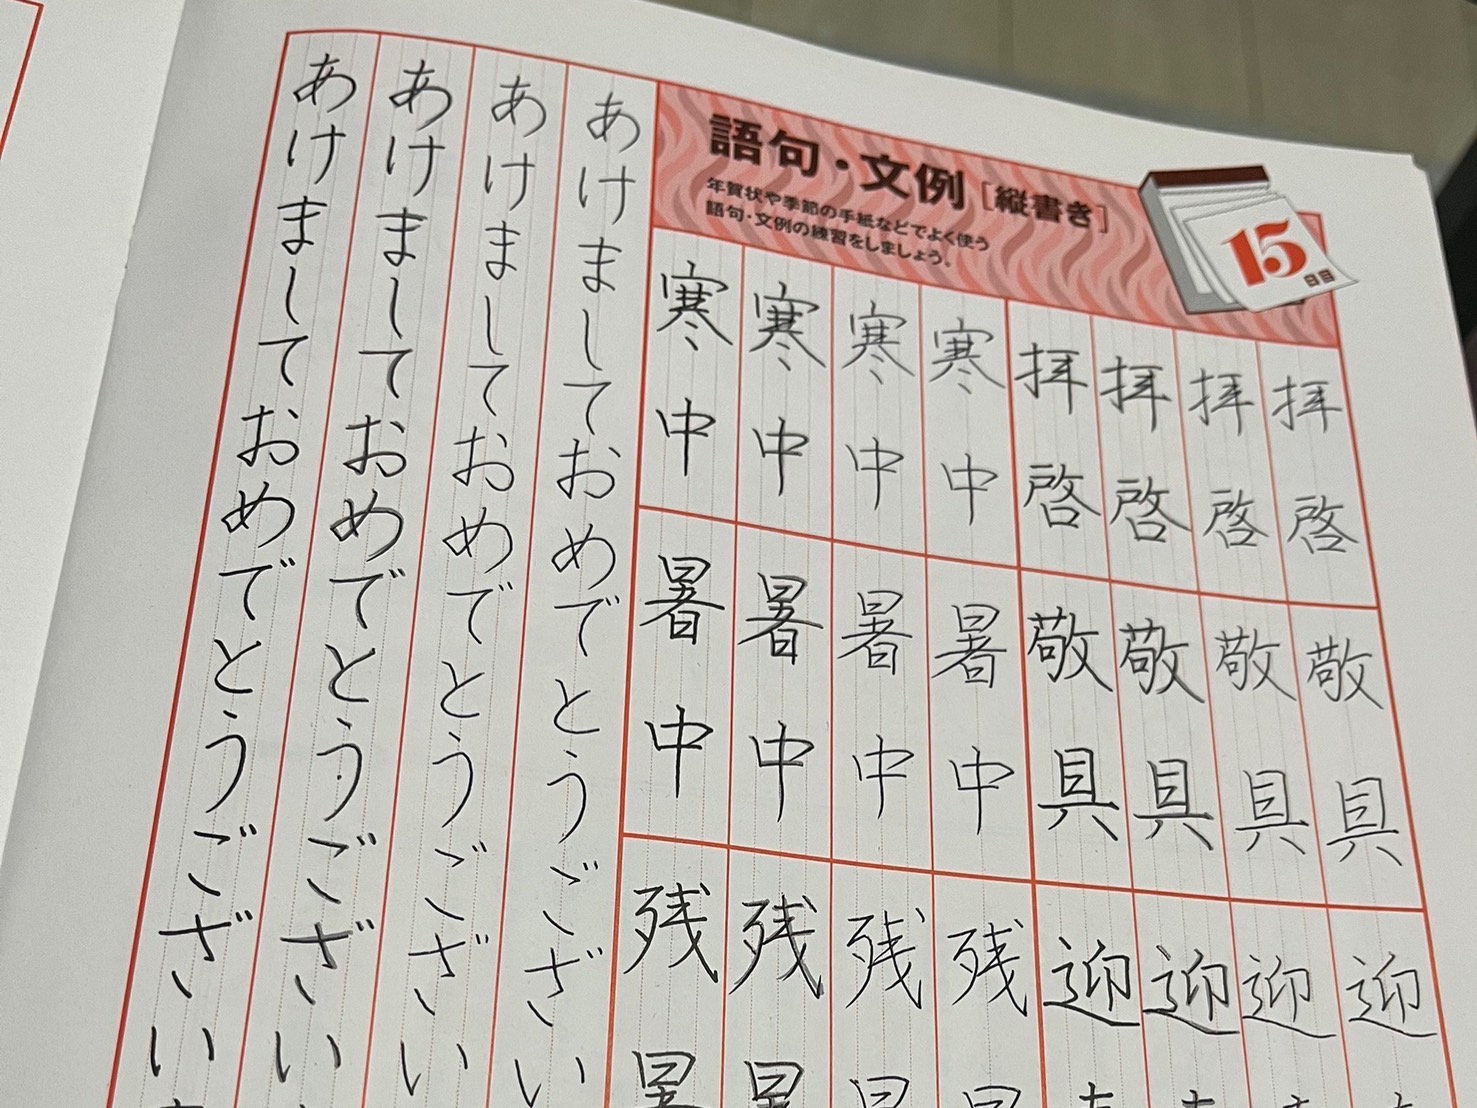 語句・文例［縦書き］
年賀状や季節の手紙などでよく使う
語句・文例の練習をしましょう。
15日目
拝啓
拝啓
拝啓
拝啓
敬具
敬具
敬具
敬具
迎
迎
迎
迎
寒中
寒中
寒中
寒中
暑中
暑中
暑中
暑中
残
残
残
残
あけましておめでとうござい
あけましておめでとうござい
あけましておめでとうござい
あけましておめでとうござい